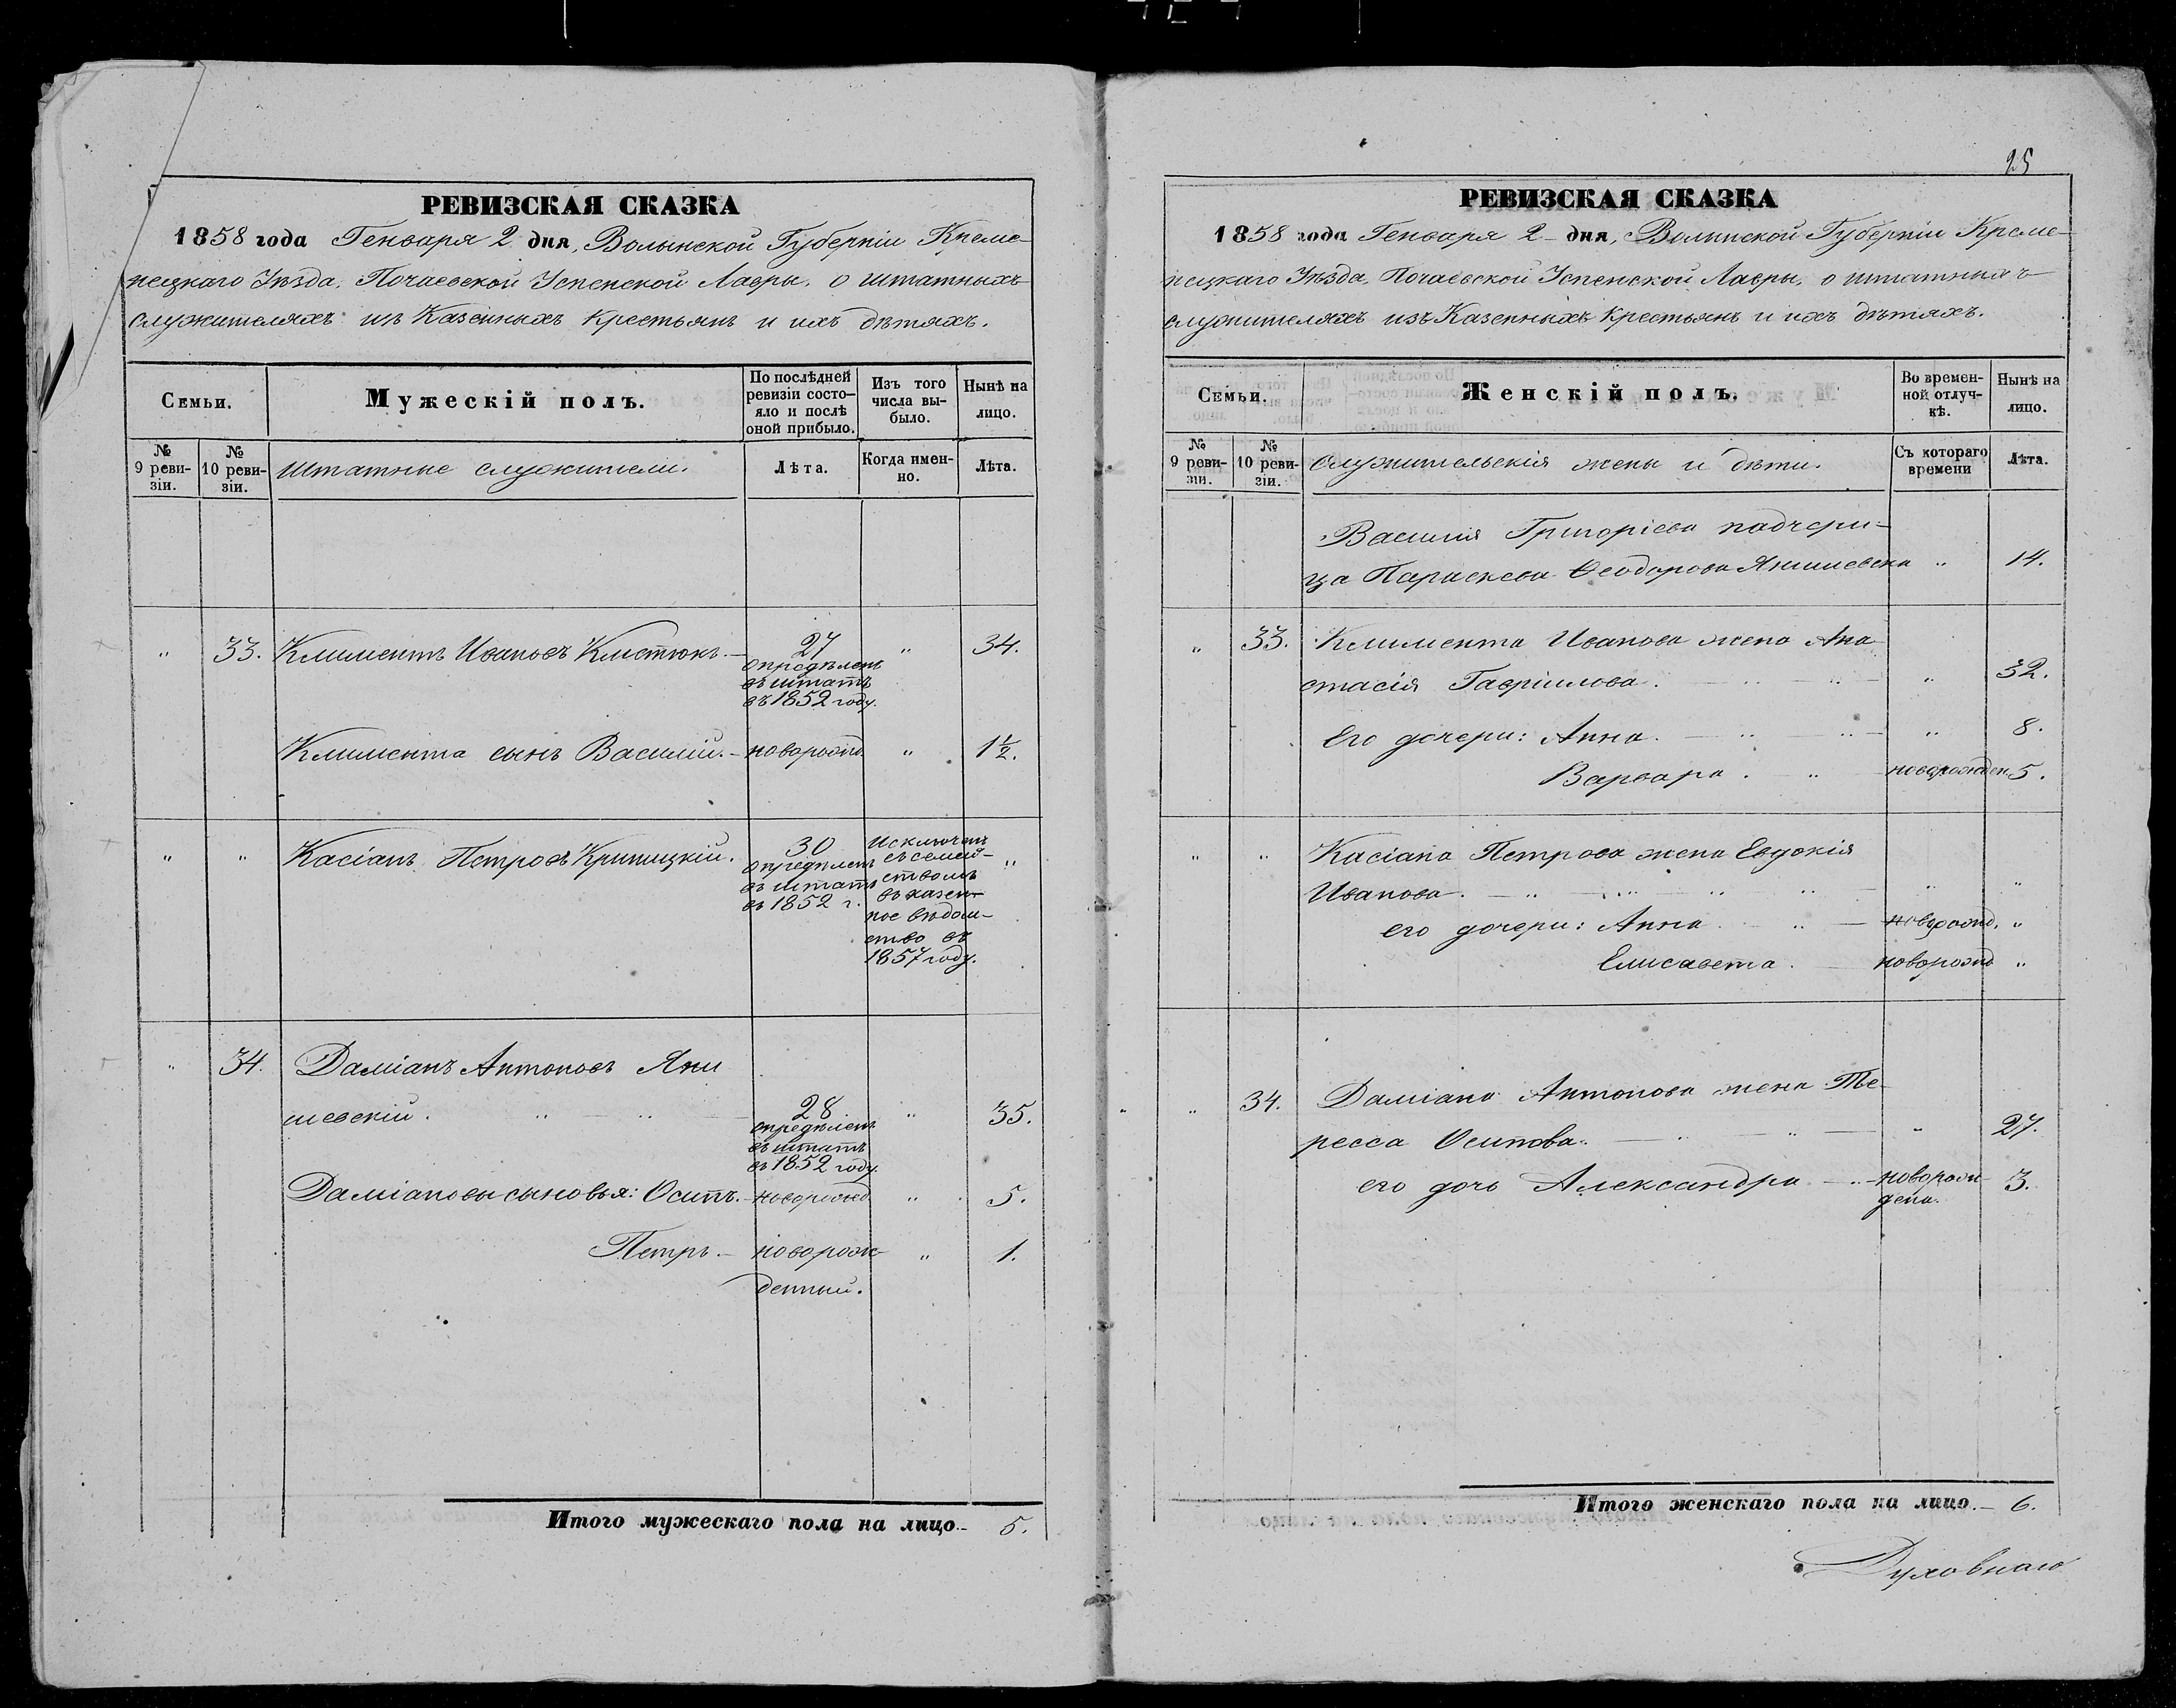 РЕВИЗСКАЯ СКАЗКА
1858 года Генваря 2 дня, Волынской Губерніи Креме-
нецкаго Уѣзда, Почаевской Успенской Лавры, о штатныхъ
служителяхъ изъ Казенныхъ Крестьянъ и ихъ дѣтяхъ.
Семьи.
Мужескій полъ.
По послѣдней
ревизіи состо-
яло и послѣ
оной прибыло.
Изъ того
числа вы-
было.
Нынѣ на
лицо.
№
9 реви-
зіи.
№
10 реви-
зіи.
Штатные служители.
Лѣта.
Когда имен-
но.
Лѣта.
" 33. Климентъ Ивановъ Костюкъ. — 27 " 34.
опредѣленъ
въ штатъ
въ 1852 году.
Климента сынъ Василій. — новорожд " 1½.
" " Касіанъ Петровъ Криницкій. 30
опредѣленъ
въ штатъ
въ 1852 г.
Исключенъ
съ семей-
ствомъ
въ казен-
ное вѣдом-
ство въ
1857 году.
"
" 34. Даміанъ Антоновъ Яни
шевскій. " " 28. " 35.
опредѣленъ
въ штатъ
въ 1852 году.
Даміановы сыновья: Осипъ. — новорожд " 5.
Петръ. — новорож- " 1.
денный.
Итого мужескаго пола на лицо — 5.
25
РЕВИЗСКАЯ СКАЗКА
1858 года Генваря 2 дня, Волынской Губерніи Креме-
нецкаго Уѣзда, Почаевской Успенской Лавры, о штатныхъ
служителяхъ изъ Казенныхъ Крестьянъ и ихъ дѣтяхъ.
Семьи.
Женскій полъ.
Во времен-
ной отлуч-
кѣ.
Нынѣ на
лицо.
№
9 реви-
зіи.
№
10 реви-
зіи.
Служительскія жены и дѣти.
Съ котораго
времени
Лѣта.
Василія Григоріева падчери-
ца Параскева Ѳеодорова Янишевска " 14.
" 33. Климента Иванова жена Ана
стасія Гавріилова. " " 32.
Его дочери: Анна. " " " 8.
Варвара. " новорожден 5.
" " Касіана Петрова жена Евдокія
Иванова. " " " " " "
его дочери: Анна " новорожд. "
Елисавета. новорожд "
" 34. Даміана Антонова жена Те-
ресса Осипова. " " " 27.
его дочь Александра — новорож- 3.
дена.
Итого женскаго пола на лицо — 6.
Духовнаго